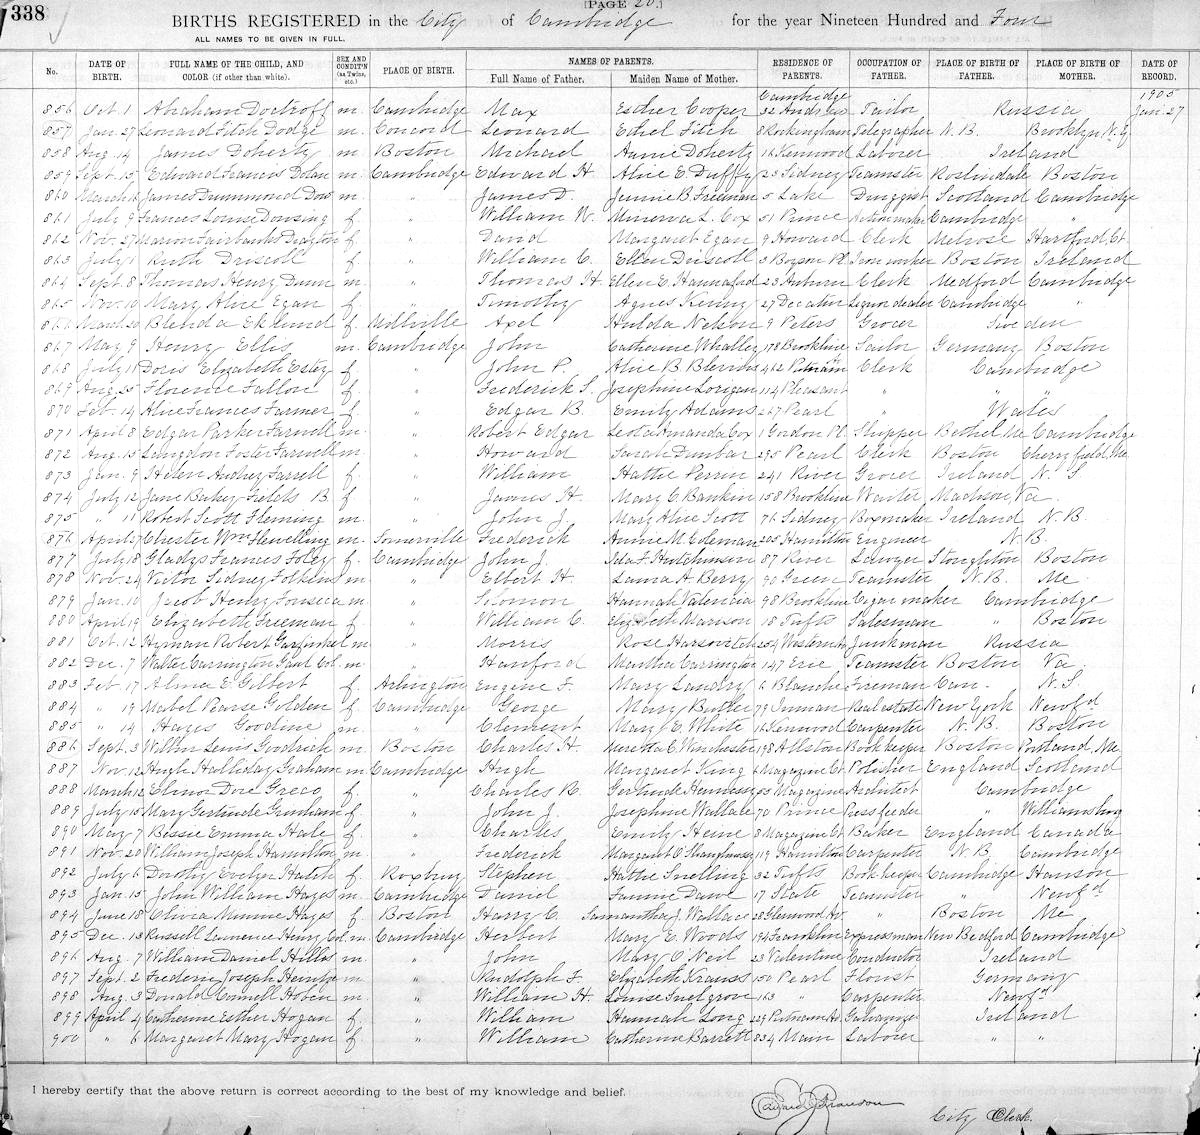 338
[PAGE 20.]
BIRTHS REGISTERED in the City of Cambridge for the year Nineteen Hundred and Four
ALL NAMES TO BE GIVEN IN FULL.
No. DATE OF BIRTH. FULL NAME OF THE CHILD, AND COLOR (if other than white). SEX AND CONDIT'N (as Twins, etc.) PLACE OF BIRTH. NAMES OF PARENTS. Full Name of Father. Maiden Name of Mother. RESIDENCE OF PARENTS. OCCUPATION OF FATHER. PLACE OF BIRTH OF FATHER. PLACE OF BIRTH OF MOTHER. DATE OF RECORD.
Cambridge 1905
856 Oct. 1 Abraham Doctroff m. Cambridge Max Esther Cooper 32 Andrew Tailor Russia Jan. 27
857 Jan. 27 Leonard Fitch Dodge m. Concord Leonard Ethel Fitch 8 Rockingham Telegrapher N. B. Brooklyn, N.Y.
858 Aug. 14 James Doherty m. Boston Michael Annie Doherty 16 Kenwood Laborer Ireland
859 Sept. 15 Edward Francis Dolan m. Cambridge Edward H. Alice E. Duffy 25 Sidney Teamster Roslindale Boston
860 March 16 James Drummond Dow m. " James D. Jennie B. Freeman 5 Lake Druggist Scotland Cambridge
861 July 9 Frances Louise Dowsing f. " William W. Minerva L. Cox 51 Prince Action maker Cambridge "
862 Nov. 27 Marion Fairbanks Drayton f. " David Margaret Egan 9 Howard Clerk Melrose Hartford, Ct.
863 July 1 Ruth Driscoll f. " William C. Ellen Driscoll 3 Boyson Pl. Iron worker Boston Ireland
864 Sept. 8 Thomas Henry Dunn m. " Thomas H. Ellen E. Hannaford 23 Auburn Clerk Medford Cambridge
865 Nov. 10 Mary Alice Egan f. " Timothy Agnes Kenny 27 Decatur Liquor dealer Cambridge "
866 March 20 Blenda Eklund f. Millville Axel Hulda Nelson 9 Peters Grocer Sweden
867 May 9 Henry Ellis m. Cambridge John Catherine Whalley 178 Brookline Sailor Germany Boston
868 July 11 Doris Elizabeth Estey f. " John P. Alice B. Blevins 462 Putnam Clerk Cambridge
869 Aug. 25 Florence Fallon f. " Frederick S. Josephine Lorigan 114 Pleasant " " "
870 Feb. 14 Alice Frances Farmer f. " Edgar B. Emily Adams 267 Pearl " Wales
871 April 8 Edgar Parker Farwell m. " Robert Edgar Leota Amanda Cox 1 Gordon Pl. Shipper Bethel, Me. Cambridge
872 Aug. 15 Langdon Foster Farwell m. " Howard Sarah Dunbar 295 Pearl Clerk Boston Cherryfield, Me.
873 Jan. 9 Helen Audrey Farrell f. " William Hattie Perrin 241 River Grocer Ireland N. S.
874 July 12 Jane Bailey Fields B f. " James H. Mary C. Bankin 158 Brookline Waiter Madison, Va.
875 " 11 Robert Scott Fleming m. " John J. Mary Alice Scott 76 Sidney Boxmaker Ireland N. B.
876 April 27 Chester Wm. Flewelling m. Somerville Frederick Annie M. Coleman 205 Hamilton Engineer N. B.
877 July 18 Gladys Frances Foley f. Cambridge John J. Ida F. Hutchinson 87 River Lawyer Stoughton Boston
878 Nov. 24 Victor Sidney Folkins m. " Elbert H. Laura A. Berry 90 Green Teamster N. B. Me.
879 Jan. 10 Jacob Henry Fonseca m. " Solomon Hannah Valencia 98 Brookline Cigar maker Cambridge
880 April 19 Elizabeth Freeman f. " William C. Elizabeth Marison 18 Tufts Salesman " Boston
881 Oct. 12 Hyman Robert Garfinkel m. " Morris Rose 254 Western Av Junkman Russia
882 Dec. 7 Walter Carrington Gaul Col. m. " Hanford Martha Carrington 147 Erie Teamster Boston Va.
883 Feb. 17 Alma E. Gilbert f. Arlington Eugene F. Mary Landry 6 Blanche Fireman Can. N. S.
884 " 19 Mabel Pearse Golden f. Cambridge George Mary Butler 79 Inman Real estate New York Newf'd
885 " 14 Hazes Goodine m. " Clement Mary E. White 16 Kenwood Carpenter N. B. Boston
886 Sept. 3 Wilbur Lewis Goodrich m. Boston Charles H. Meretta C. Winchester 198 Allston Bookkeeper Boston Portland, Me.
887 Nov. 12 Hugh Halliday Graham m. Cambridge Hugh Margaret King 6 Magazine Ct. Polisher England Scotland
888 March 12 Elinor Dore Greco f. " Charles R. Gertrude Hennessy 55 Magazine Architect Cambridge
889 July 15 Mary Gertrude Grinham f. " John J. Josephine Wallace 70 Prince Pressfeeder " Williamsburg
890 May 7 Bessie Emma Hale f. " Charles Emily Heine 8 Magazine Ct. Baker England Canada
891 Nov. 20 William Joseph Hamilton m. " Frederick Margaret O'Shaughnessy 119 Hamilton Carpenter N. B. Cambridge
892 July 6 Dorothy Evelyn Hatch f. Roxbury Stephen Hattie Snelling 32 Tufts Bookkeeper Cambridge Hanson
893 Jan. 15 John William Hayes m. Cambridge Daniel Fannie Dawe 17 State Teamster " Newf'd
894 June 18 Olivia Minnie Hayes f. Boston Harry C. Samantha J. Wallace 28 Glenwood Av " Boston Me.
895 Dec. 13 Russell Lawrence Henry Col. m. Cambridge Herbert Mary E. Woods 194 Franklin Expressman New Bedford Cambridge
896 Aug. 7 William Daniel Hillis m. " John Mary O'Neil 23 Valentine Conductor Ireland
897 Sept. 2 Frederic Joseph m. " Rudolph F. Elizabeth Krauss 150 Pearl Florist Germany
898 Aug. 3 Donald Connell Hoben m. " William H. Louise Snelgrove 163 " Carpenter Newf'd
899 April 4 Catherine Esther Hogan f. " William Hannah Long 229 Putnam Av Ireland
900 " 6 Margaret Mary Hogan f. " William Catherine Barrett 834 Main Laborer " "
I hereby certify that the above return is correct according to the best of my knowledge and belief.
Edward J. Brandon
City Clerk.